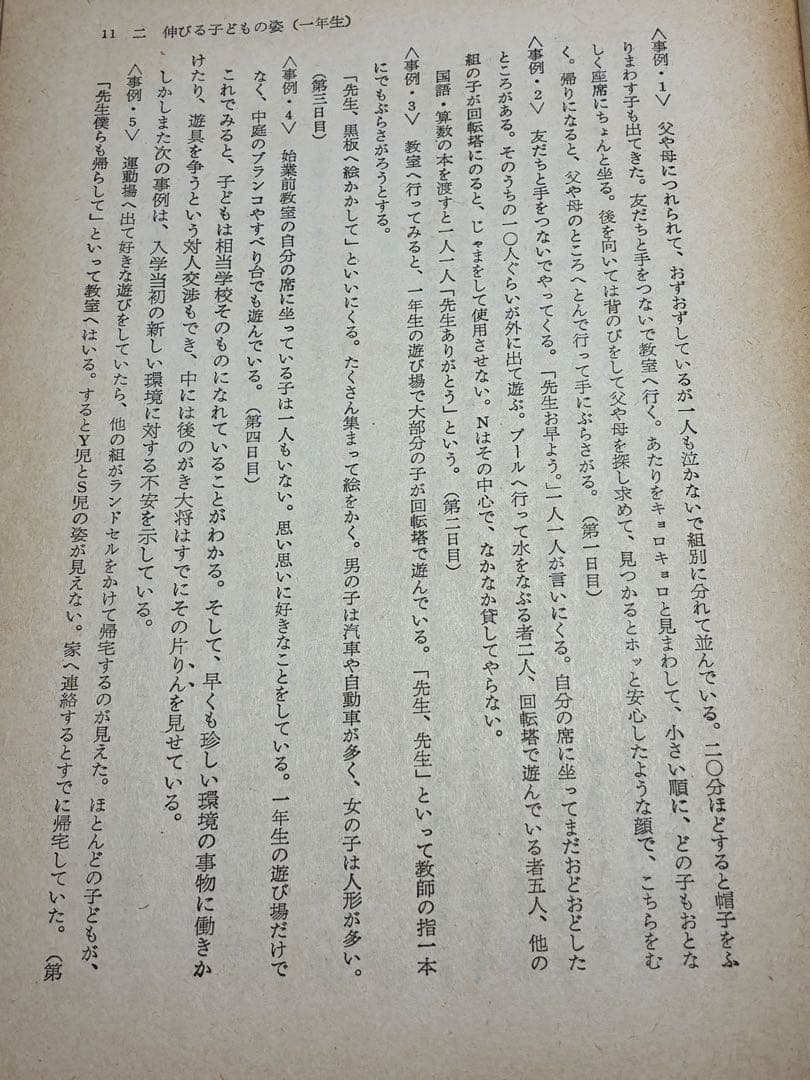 11 二 伸びる子どもの姿（一年生）
〈事例・1〉 父や母につれられて、おずおずしているが一人も泣かないで組別に分れて並んでいる。二〇分ほどすると帽子をふ
りまわす子も出てきた。友だちと手をつないで教室へ行く。あたりをキョロキョロと見まわして、小さい順に、どの子もおとな
しく座席にちょんと坐る。後を向いては背のびをして父や母を探し求めて、見つかるとホッと安心したような顔で、こちらをむ
く。帰りになると、父や母のところへとんで行って手にぶらさがる。（第一日目）
〈事例・2〉 友だちと手をつないでやってくる。「先生お早よう。」一人一人が言いにくる。自分の席に坐ってまだおどおどした
ところがある。そのうちの一〇人ぐらいが外に出て遊ぶ。プールへ行って水をなぶる者二人、回転塔で遊んでいる者五人、他の
組の子が回転塔にのると、じゃまをして使用させない。Nはその中心で、なかなか貸してやらない。
国語・算数の本を渡すと一人一人「先生ありがとう」という。（第二日目）
〈事例・3〉 教室へ行ってみると、一年生の遊び場で大部分の子が回転塔で遊んでいる。「先生、先生」といって教師の指一本
にでもぶらさがろうとする。
「先生、黒板へ絵かかして」といいにくる。たくさん集まって絵をかく。男の子は汽車や自動車が多く、女の子は人形が多い。
（第三日目）
〈事例・4〉 始業前教室の自分の席に坐っている子は一人もいない。思い思いに好きなことをしている。一年生の遊び場だけで
なく、中庭のブランコやすべり台でも遊んでいる。（第四日目）
これでみると、子どもは相当学校そのものになれていることがわかる。そして、早くも珍しい環境の事物に働きか
けたり、遊具を争うという対人交渉もでき、中には後のがき大将はすでにその片りんを見せている。
しかしまた次の事例は、入学当初の新しい環境に対する不安を示している。
〈事例・5〉 運動場へ出て好きな遊びをしていたら、他の組がランドセルをかけて帰宅するのが見えた。ほとんどの子どもが、
「先生僕らも帰らして」といって教室へはいる。するとY児とS児の姿が見えない。家へ連絡するとすでに帰宅していた。（第